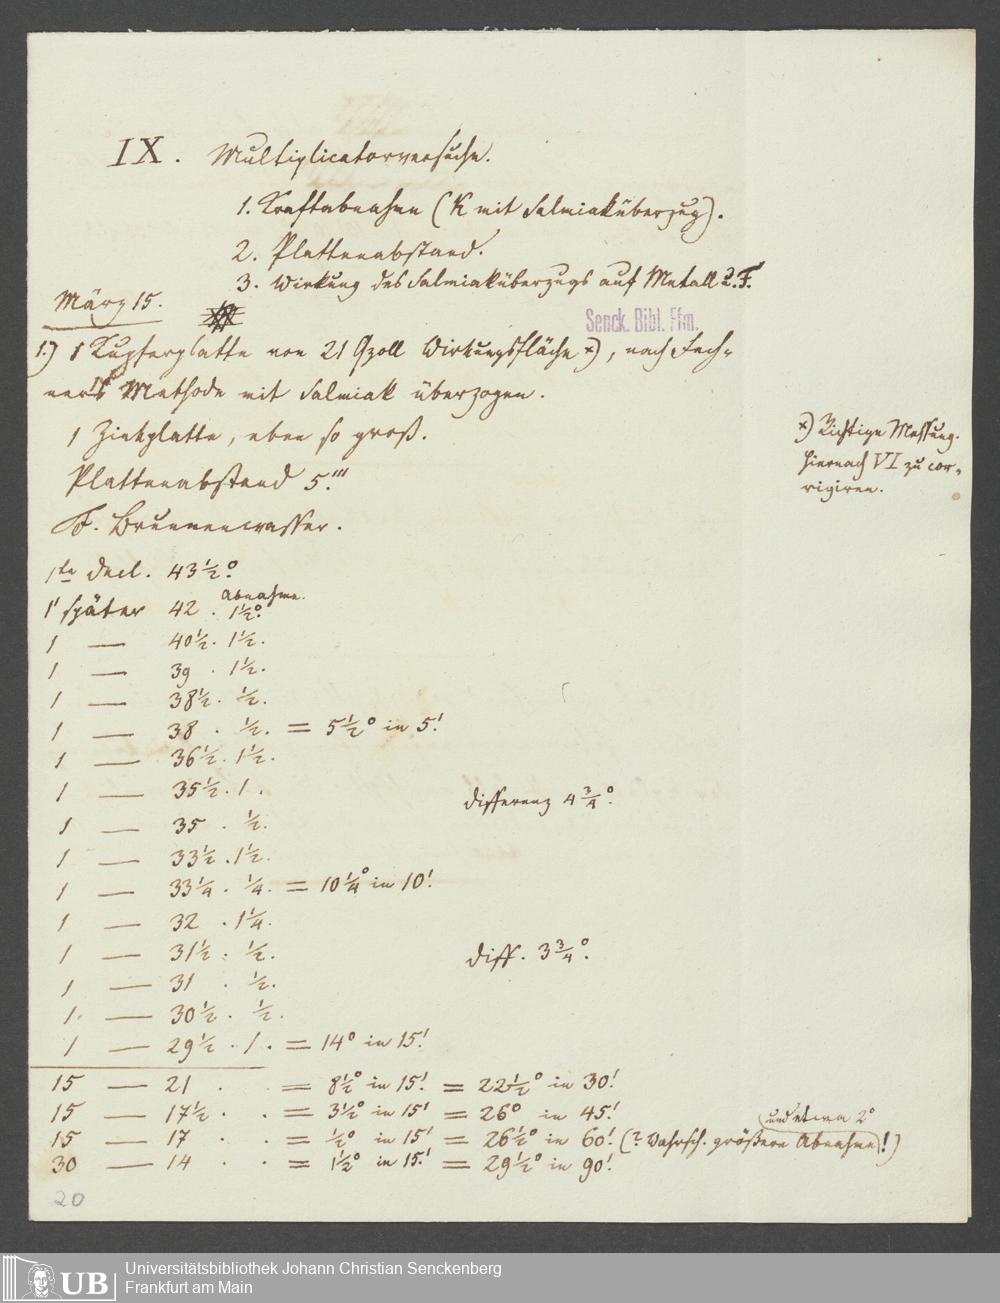 IX. Multiplicatorversuche.
1. Kraftabnahme (K mit Salmiaküberzug).
2. Plattenabstand.
3. Wirkung des Salmiaküberzugs auf Metall u. F.
März 15.
Senck. Bibl. Ffm.
1.) 1 Kupferplatte von 21 Qzoll Wirkungsfläche *), nach Fech-
ner's Methode mit Salmiak überzogen.
1 Zinkplatte, eben so groß.
Plattenabstand 5.'''
F. Brunnenwasser.
*) Richtige Messung.
hiernach VI zu cor-
rigiren.
1te Decl. 43½°.
Abnahme.
1' später 42 . 1½°.
1 — 40½. 1½.
1 — 39 . 1½.
1 — 38½. ½.
1 — 38 . ½. = 5½° in 5'.
1 — 36½. 1½.
1 — 35½. 1.
Differenz 4¾°.
1 — 35 . ½.
1 — 33½. 1½.
1 — 33¼. ¼. = 10¼° in 10'.
1 — 32 . 1¼.
1 — 31½. ½.
Diff. 3¾°.
1 — 31 . ½.
1. — 30½. ½.
1 — 29½. 1. = 14° in 15'.
15 — 21 . . = 8½° in 15'. = 22½° in 30'.
15 — 17½ . . = 3½° in 15' = 26° in 45'.
und etwa 2°
15 — 17 . . = ½° in 15' = 26½° in 60'. (? Wahrsch. größere Abnahme!)
30 — 14 . . = 1½° in 15'. = 29½° in 90'.
20
UB
Universitätsbibliothek Johann Christian Senckenberg
Frankfurt am Main